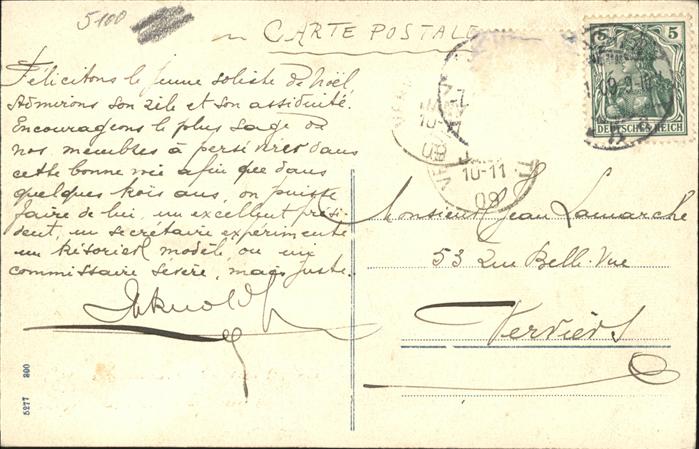 5100
CARTE POSTALE
Felicitons le jeune soliste de Noël
Admirons son zèle et son assiduité.
Encourageons le plus sage de
nos membres à persévérer dans
cette bonne voie afin que dans
quelques trois ans, on puisse
faire de lui, un excellent prési-
dent, un secrétaire experimenté
un trésorier modèle, ou un
commissaire sévère, mais juste.
5
DEUTSCHES REICH
10-11
09
Monsieur Jean Lamarche
53 Rue Belle-Vue
Verviers
5277 800